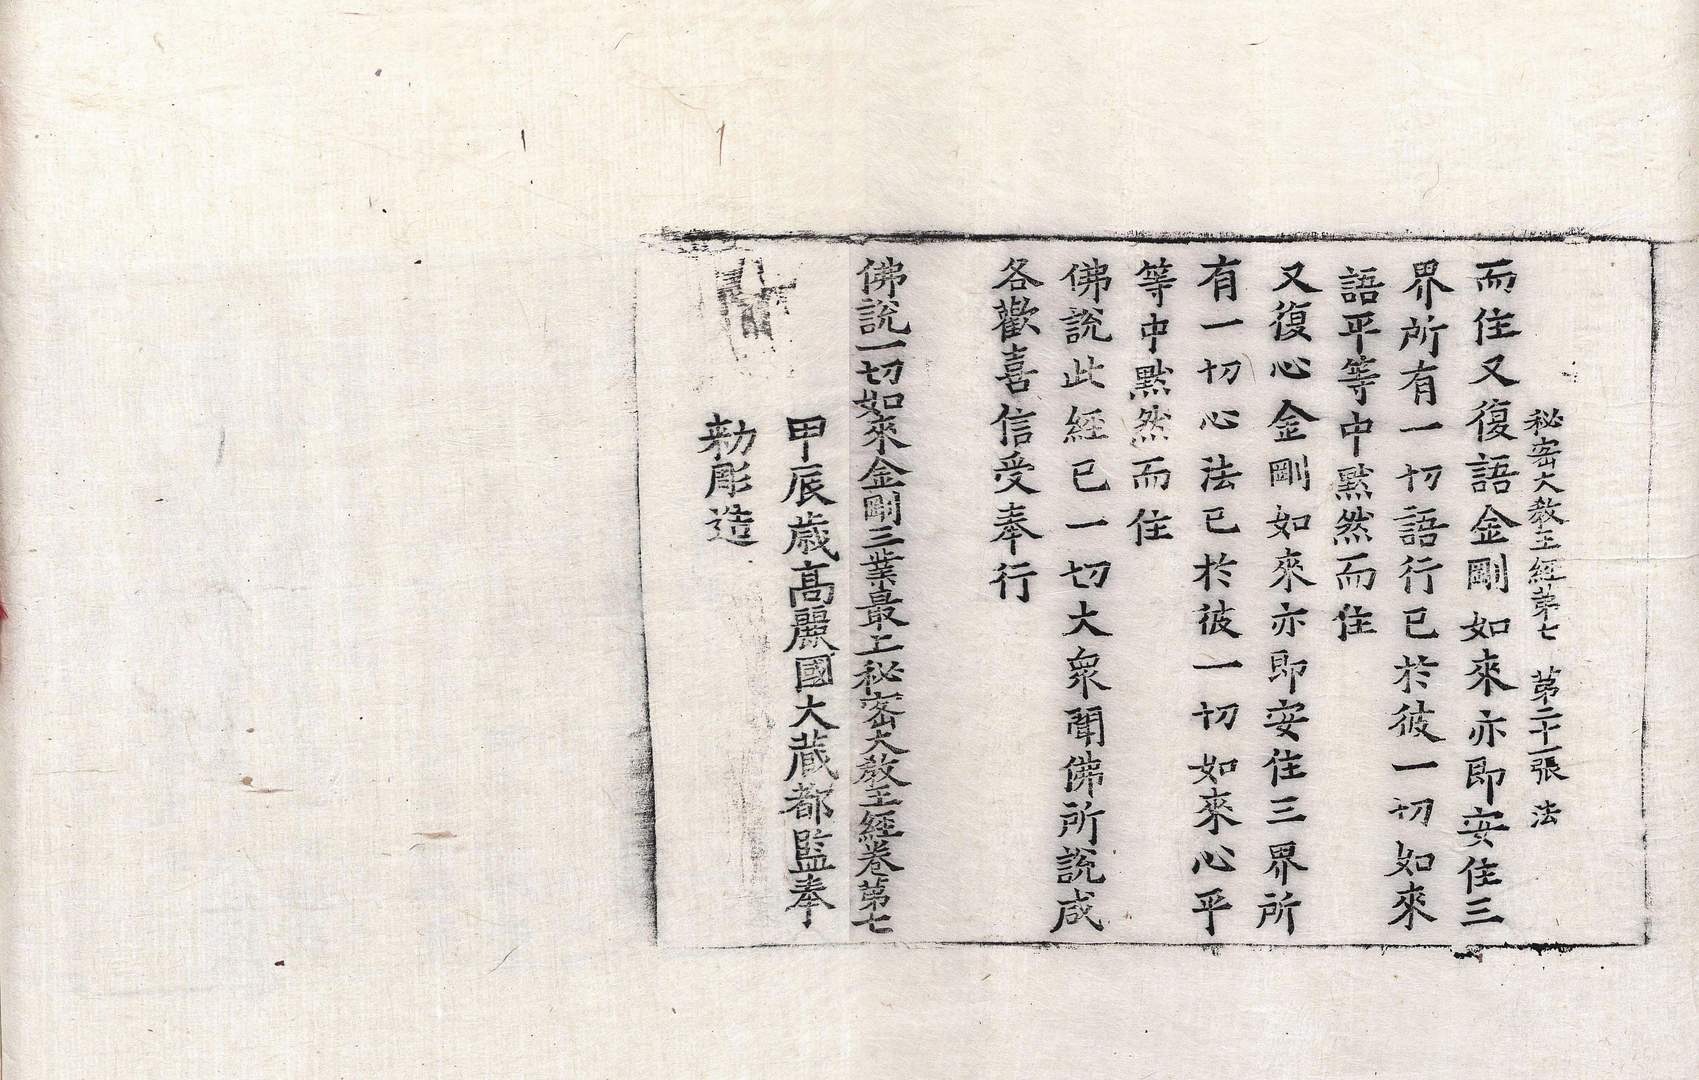 秘密大教王經第七　第二十一張　法
而住又復語金剛如來亦即安住三
界所有一切語行已於彼一切如來
語平等中黙然而住
又復心金剛如來亦即安住三界所
有一切心法已於彼一切如來心平
等中黙然而住
佛說此經已一切大衆聞佛所說咸
各歡喜信受奉行
佛說一切如來金剛三業最上秘密大教王經卷第七
甲辰歲高麗國大藏都監奉
勑彫造